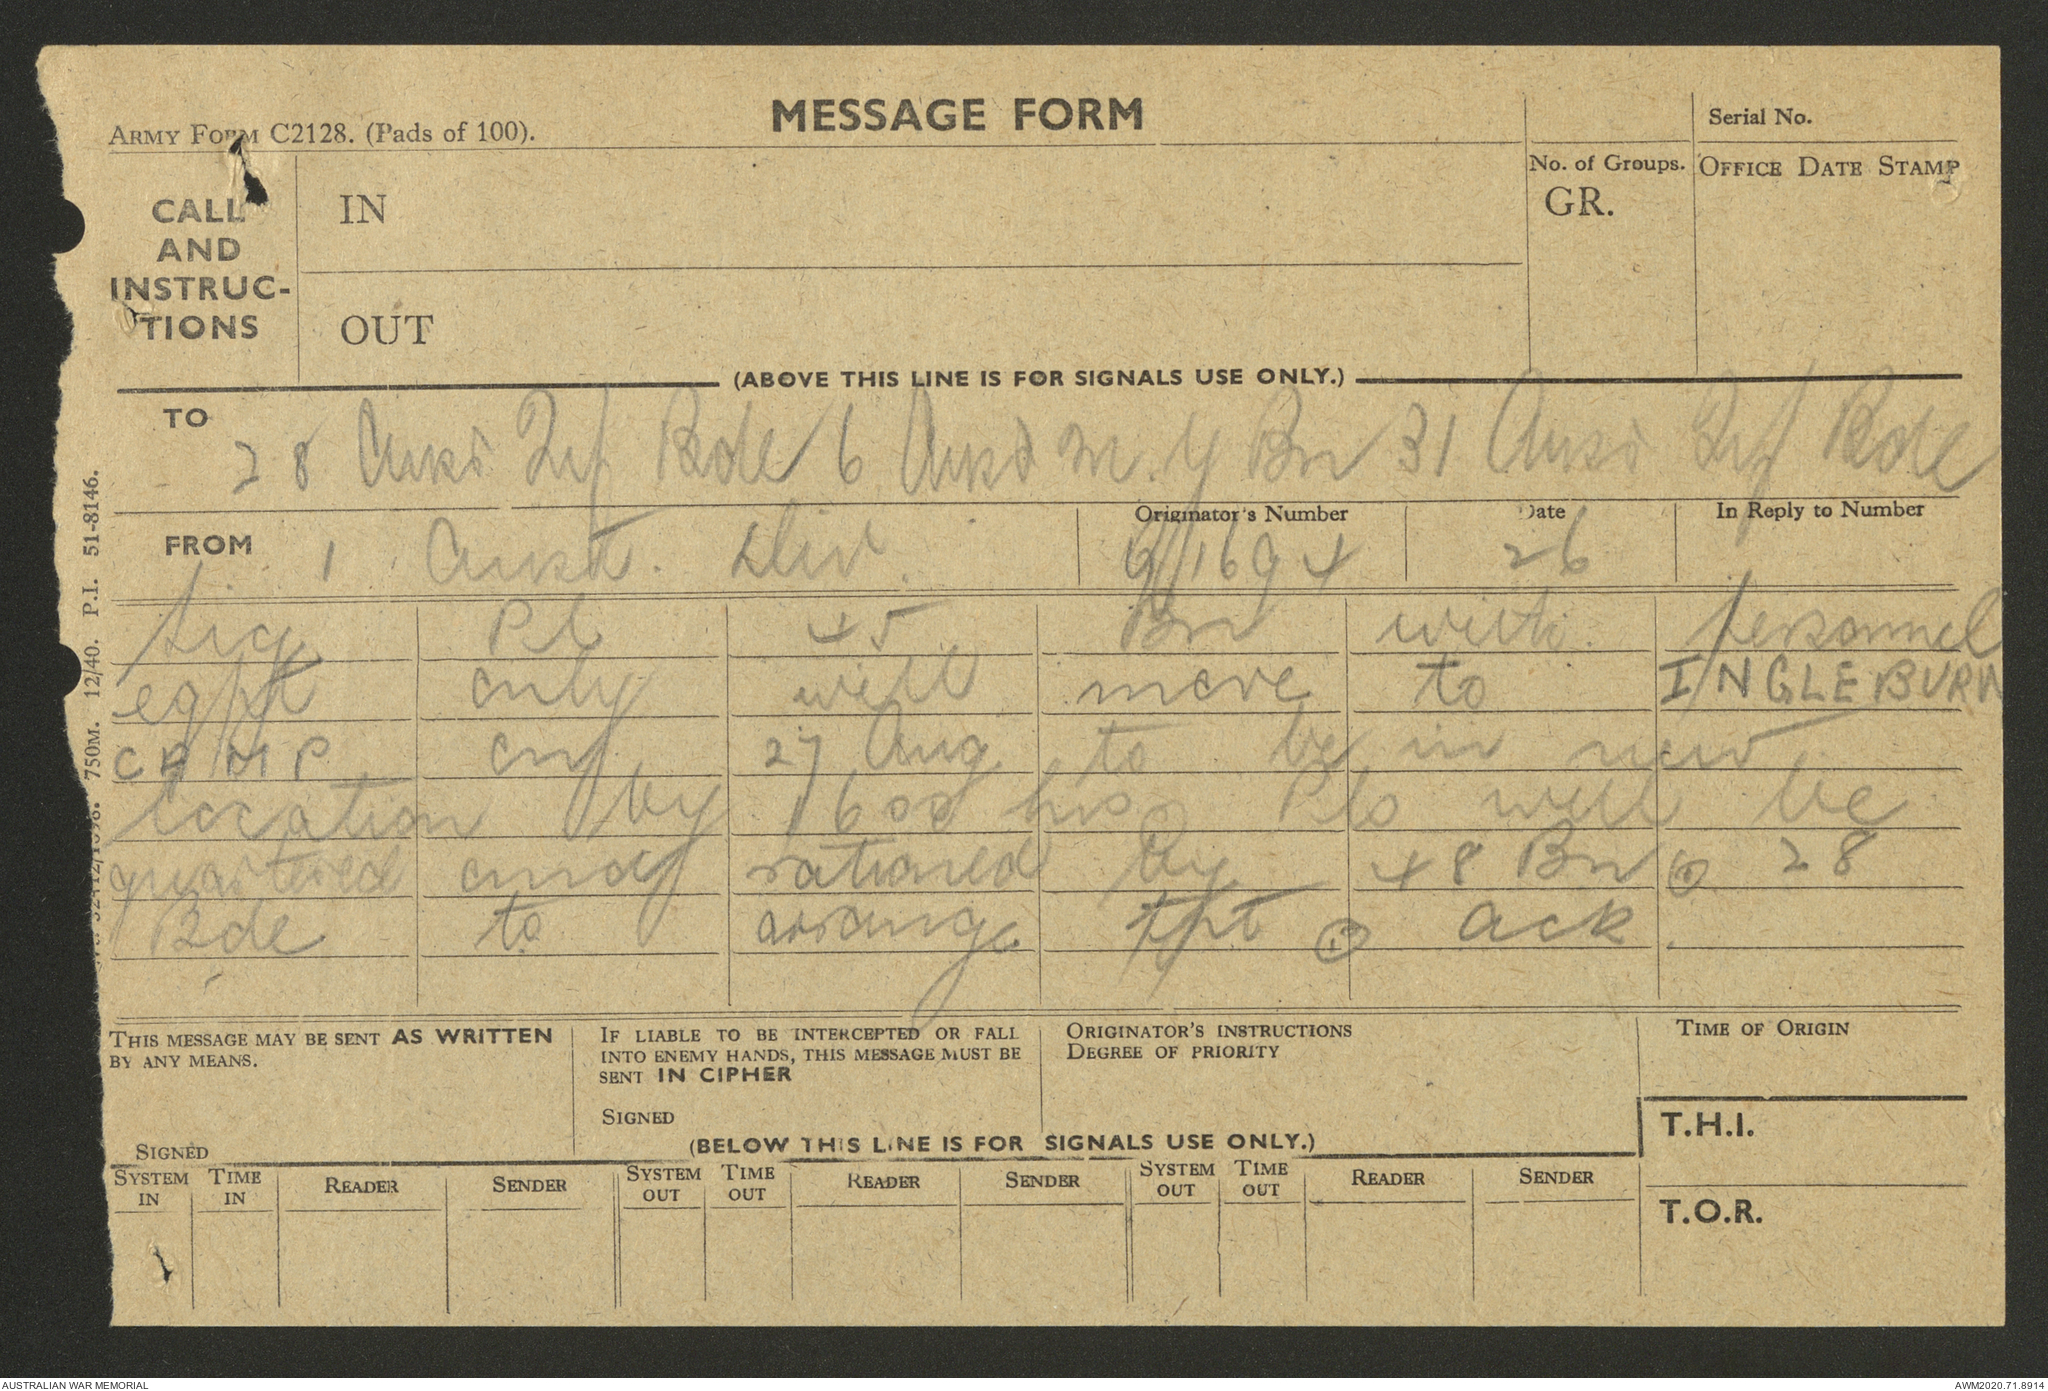 ARMY FORM C2128. (Pads of 100).
MESSAGE FORM
Serial No.
CALL AND INSTRUC- TIONS
IN
No. of Groups.
GR.
OFFICE DATE STAMP
OUT
(ABOVE THIS LINE IS FOR SIGNALS USE ONLY.)
TO
28 Aust Inf Bde 6 Aust M.G Bn 31 Aust Inf Bde
FROM 1 Aust. Div.
Originator's Number
G/1694
Date
26
In Reply to Number
Sig Pl 45 Bn with personnel
eqpt only will move to INGLEBURN
CAMP on 27 Aug to be in new
location by 1600 hrs Pls will be
quartered and rationed by 48 Bn ⊙ 28
Bde to arrange tpt ⊙ ack.
THIS MESSAGE MAY BE SENT AS WRITTEN
BY ANY MEANS.
SIGNED
IF LIABLE TO BE INTERCEPTED OR FALL
INTO ENEMY HANDS, THIS MESSAGE MUST BE
SENT IN CIPHER
SIGNED
ORIGINATOR'S INSTRUCTIONS
DEGREE OF PRIORITY
TIME OF ORIGIN
T.H.I.
(BELOW THIS LINE IS FOR SIGNALS USE ONLY.)
SYSTEM IN TIME IN READER SENDER SYSTEM OUT TIME OUT READER SENDER SYSTEM OUT TIME OUT READER SENDER
T.O.R.
750M. 12/40. P.I. 51-8146.
AUSTRALIAN WAR MEMORIAL
AWM2020.71.8914